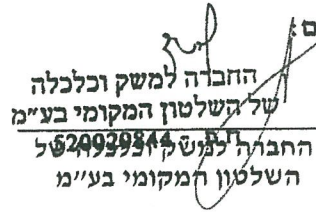 החברה למשק וכלכלה
של השלטון המקומי בע״מ
החברה למשק וכלכלה של
השלטון המקומי בע״מ